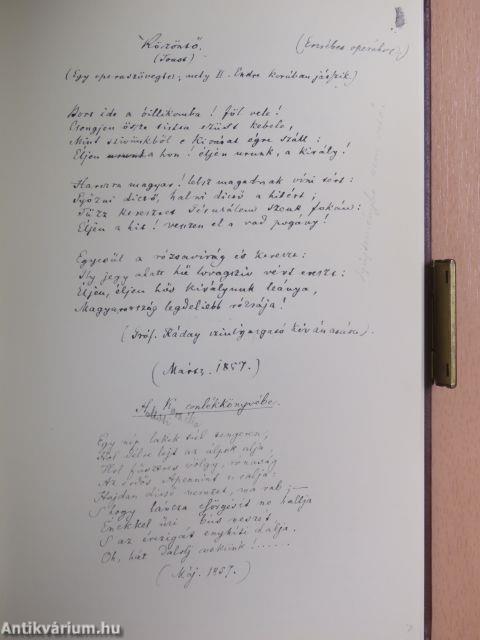 Köszöntő. (Erzsébet operához)
(Toast)
(Egy operaszövegbe, mely II. Endre korában játszik)
Bort ide a billikomba! föl vele!
Csengjen össze tiszta ezüst kebele,
Mint szivünkből e kivánat égre szállt:
Éljen a hon! éljen urunk, a király!
Harczra magyar! lelsz magadnak vívni tért:
Győzni dicső, halni dicső a hitért;
Tűzz keresztet Jérusálem szent fokán:
Éljen a hit! vesszen el a vad pogány!
Egyesül a rózsavirág és kereszt:
Ily jegy alatt hű lovagszív vért ereszt:
Éljen, éljen hős királyunk leánya,
Magyarország legdelibb rózsája!
(Gróf. Ráday szinigazgató kivánatára).
(Márcz. 1857.)
H. K. emlékkönyvébe.
Egy nép lakik túl tengeren,
Hol délre lejt az alpok alja,
Hol fűszeres völgy, rónaság
Az ődös Apennint uralja:
Hajdan dicső nemzet, ma rab; —
S hogy láncza csörgését ne hallja
Énekkel űzi bús neszét,
S az érzigát enyhíti dalja.
Oh, hát dalolj nekünk! ......
(Máj. 1857.)
Antikvárium.hu